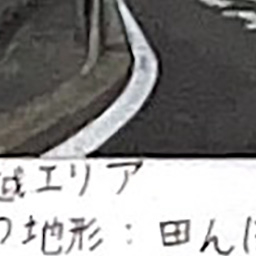 域エリア
の地形：田ん